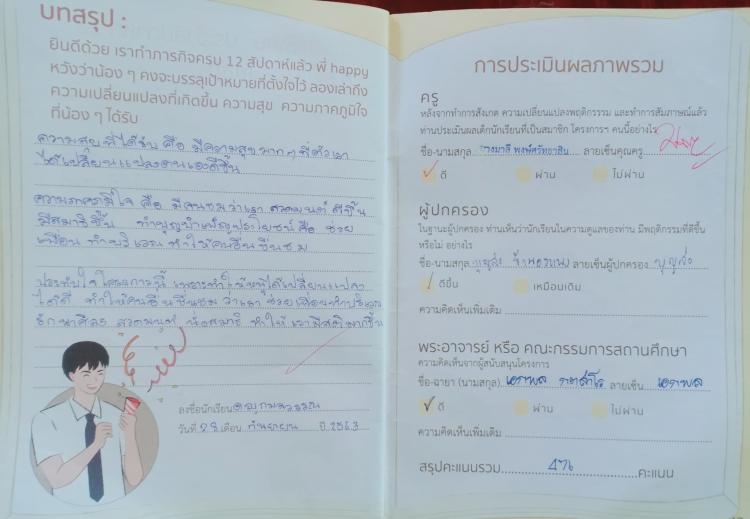 บทสรุป :
ยินดีด้วย เราทำภารกิจครบ 12 สัปดาห์แล้ว พี่ happy
หวังว่าน้อง ๆ คงจะบรรลุเป้าหมายที่ตั้งใจไว้ ลองเล่าถึง
ความเปลี่ยนแปลงที่เกิดขึ้น ความสุข ความภาคภูมิใจ
ที่น้อง ๆ ได้รับ
ความสุขที่ได้รับ คือ มีความสุขมากๆที่ตัวเรา
ได้เปลี่ยนแปลงตนเองดีขึ้น
ความภาคภูมิใจ คือ มีคนชมว่าเรา สวดมนต์ ดีขึ้น
มีสมาธิขึ้น ทำบุญบำเพ็ญประโยชน์ คือ ช่วย
เพื่อน ทำบริเวณ ทำให้คนอื่นชื่นชม
ประทับใจโครงการนี้ เพราะทำให้หนูได้เปลี่ยนแปลง
ได้ดี ทำให้คนอื่นชื่นชม ว่าเรา ช่วยเพื่อนทำบริเวณ
รักษาศีล5 สวดมนต์ นั่งสมาธิ ทำให้ เรามีสติมากขึ้น
ลงชื่อนักเรียน
วันที่ 28 เดือน กันยายน ปี 2563
การประเมินผลภาพรวม
ครู
หลังจากทำการสังเกต ความเปลี่ยนแปลงพฤติกรรม และทำการสัมภาษณ์แล้ว
ท่านประเมินผลเด็กนักเรียนที่เป็นสมาชิก โครงการฯ คนนี้อย่างไร
ชื่อ-นามสกุล พงษ์ศรัทธาสิน ลายเซ็นคุณครู
ดี ผ่าน ไม่ผ่าน
ผู้ปกครอง
ในฐานะผู้ปกครอง ท่านเห็นว่านักเรียนในความดูแลของท่าน มีพฤติกรรมที่ดีขึ้น
หรือไม่ อย่างไร
ชื่อ-นามสกุล ลายเซ็นผู้ปกครอง
ดีขึ้น เหมือนเดิม
ความคิดเห็นเพิ่มเติม
พระอาจารย์ หรือ คณะกรรมการสถานศึกษา
ความคิดเห็นจากผู้สนับสนุนโครงการ
ชื่อ-ฉายา (นามสกุล) เอกพล ลายเซ็น เอกพล
ดี ผ่าน ไม่ผ่าน
ความคิดเห็นเพิ่มเติม
สรุปคะแนนรวม คะแนน